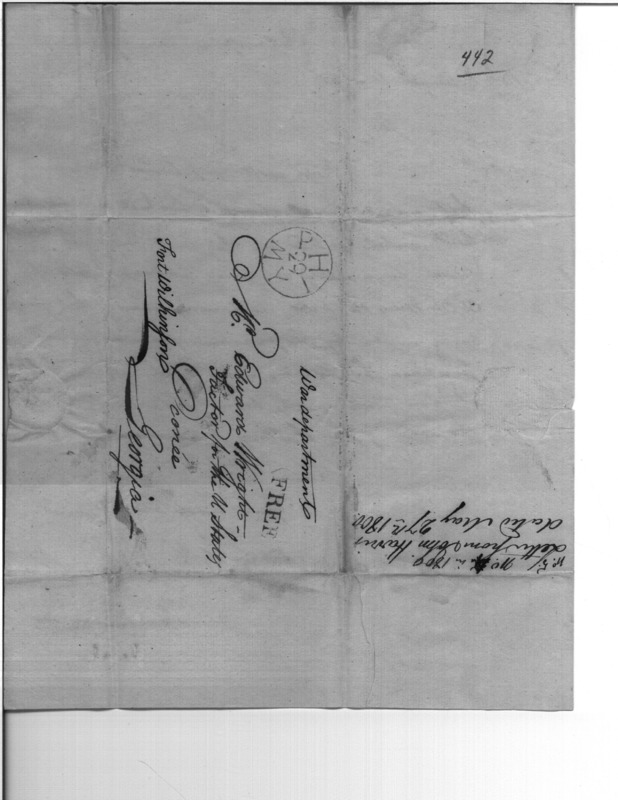 442
PH
29
MY
War department
FREE
Mr. Edward Wright
Factor for the U. States
Oconée
Fort Wilkinson
Georgia
No. 1800
Letter from John Harris
dated May 27th 1800